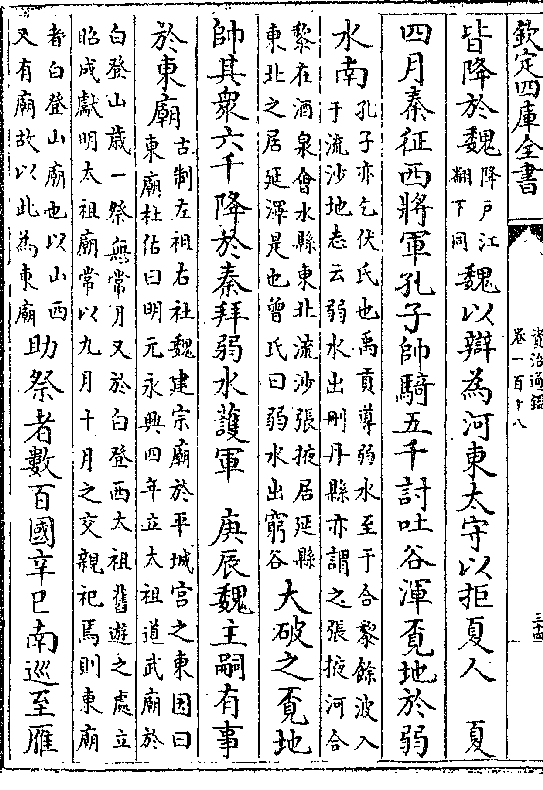 欽定四庫全書
資治通鑑
卷一百十八
皆降於魏
降戶江
翻下同
魏以辯為河東太守以拒夏人　夏
四月秦征西將軍孔子帥騎五千討吐谷渾覔地於弱
水南
孔子亦乞伏氏也禹貢導弱水至于合黎餘波入
于流沙地志云弱水出刪丹縣亦謂之張掖河合
黎在酒泉會水縣東北流沙張掖居延縣
東北之居延澤是也曾氏曰弱水出窮谷
大破之覔地
帥其衆六千降於秦拜弱水護軍　庚辰魏主嗣有事
於東廟
古制左祖右社魏建宗廟於平城宫之東因曰
東廟杜佑曰明元永興四年立太祖道武廟於
白登山歳一祭無常月又於白登西太祖舊遊之處立
昭成獻明太祖廟常以九月十月之交親祀焉則東廟
者白登山廟也以山西
又有廟故以此為東廟
助祭者數百國辛巳南巡至雁